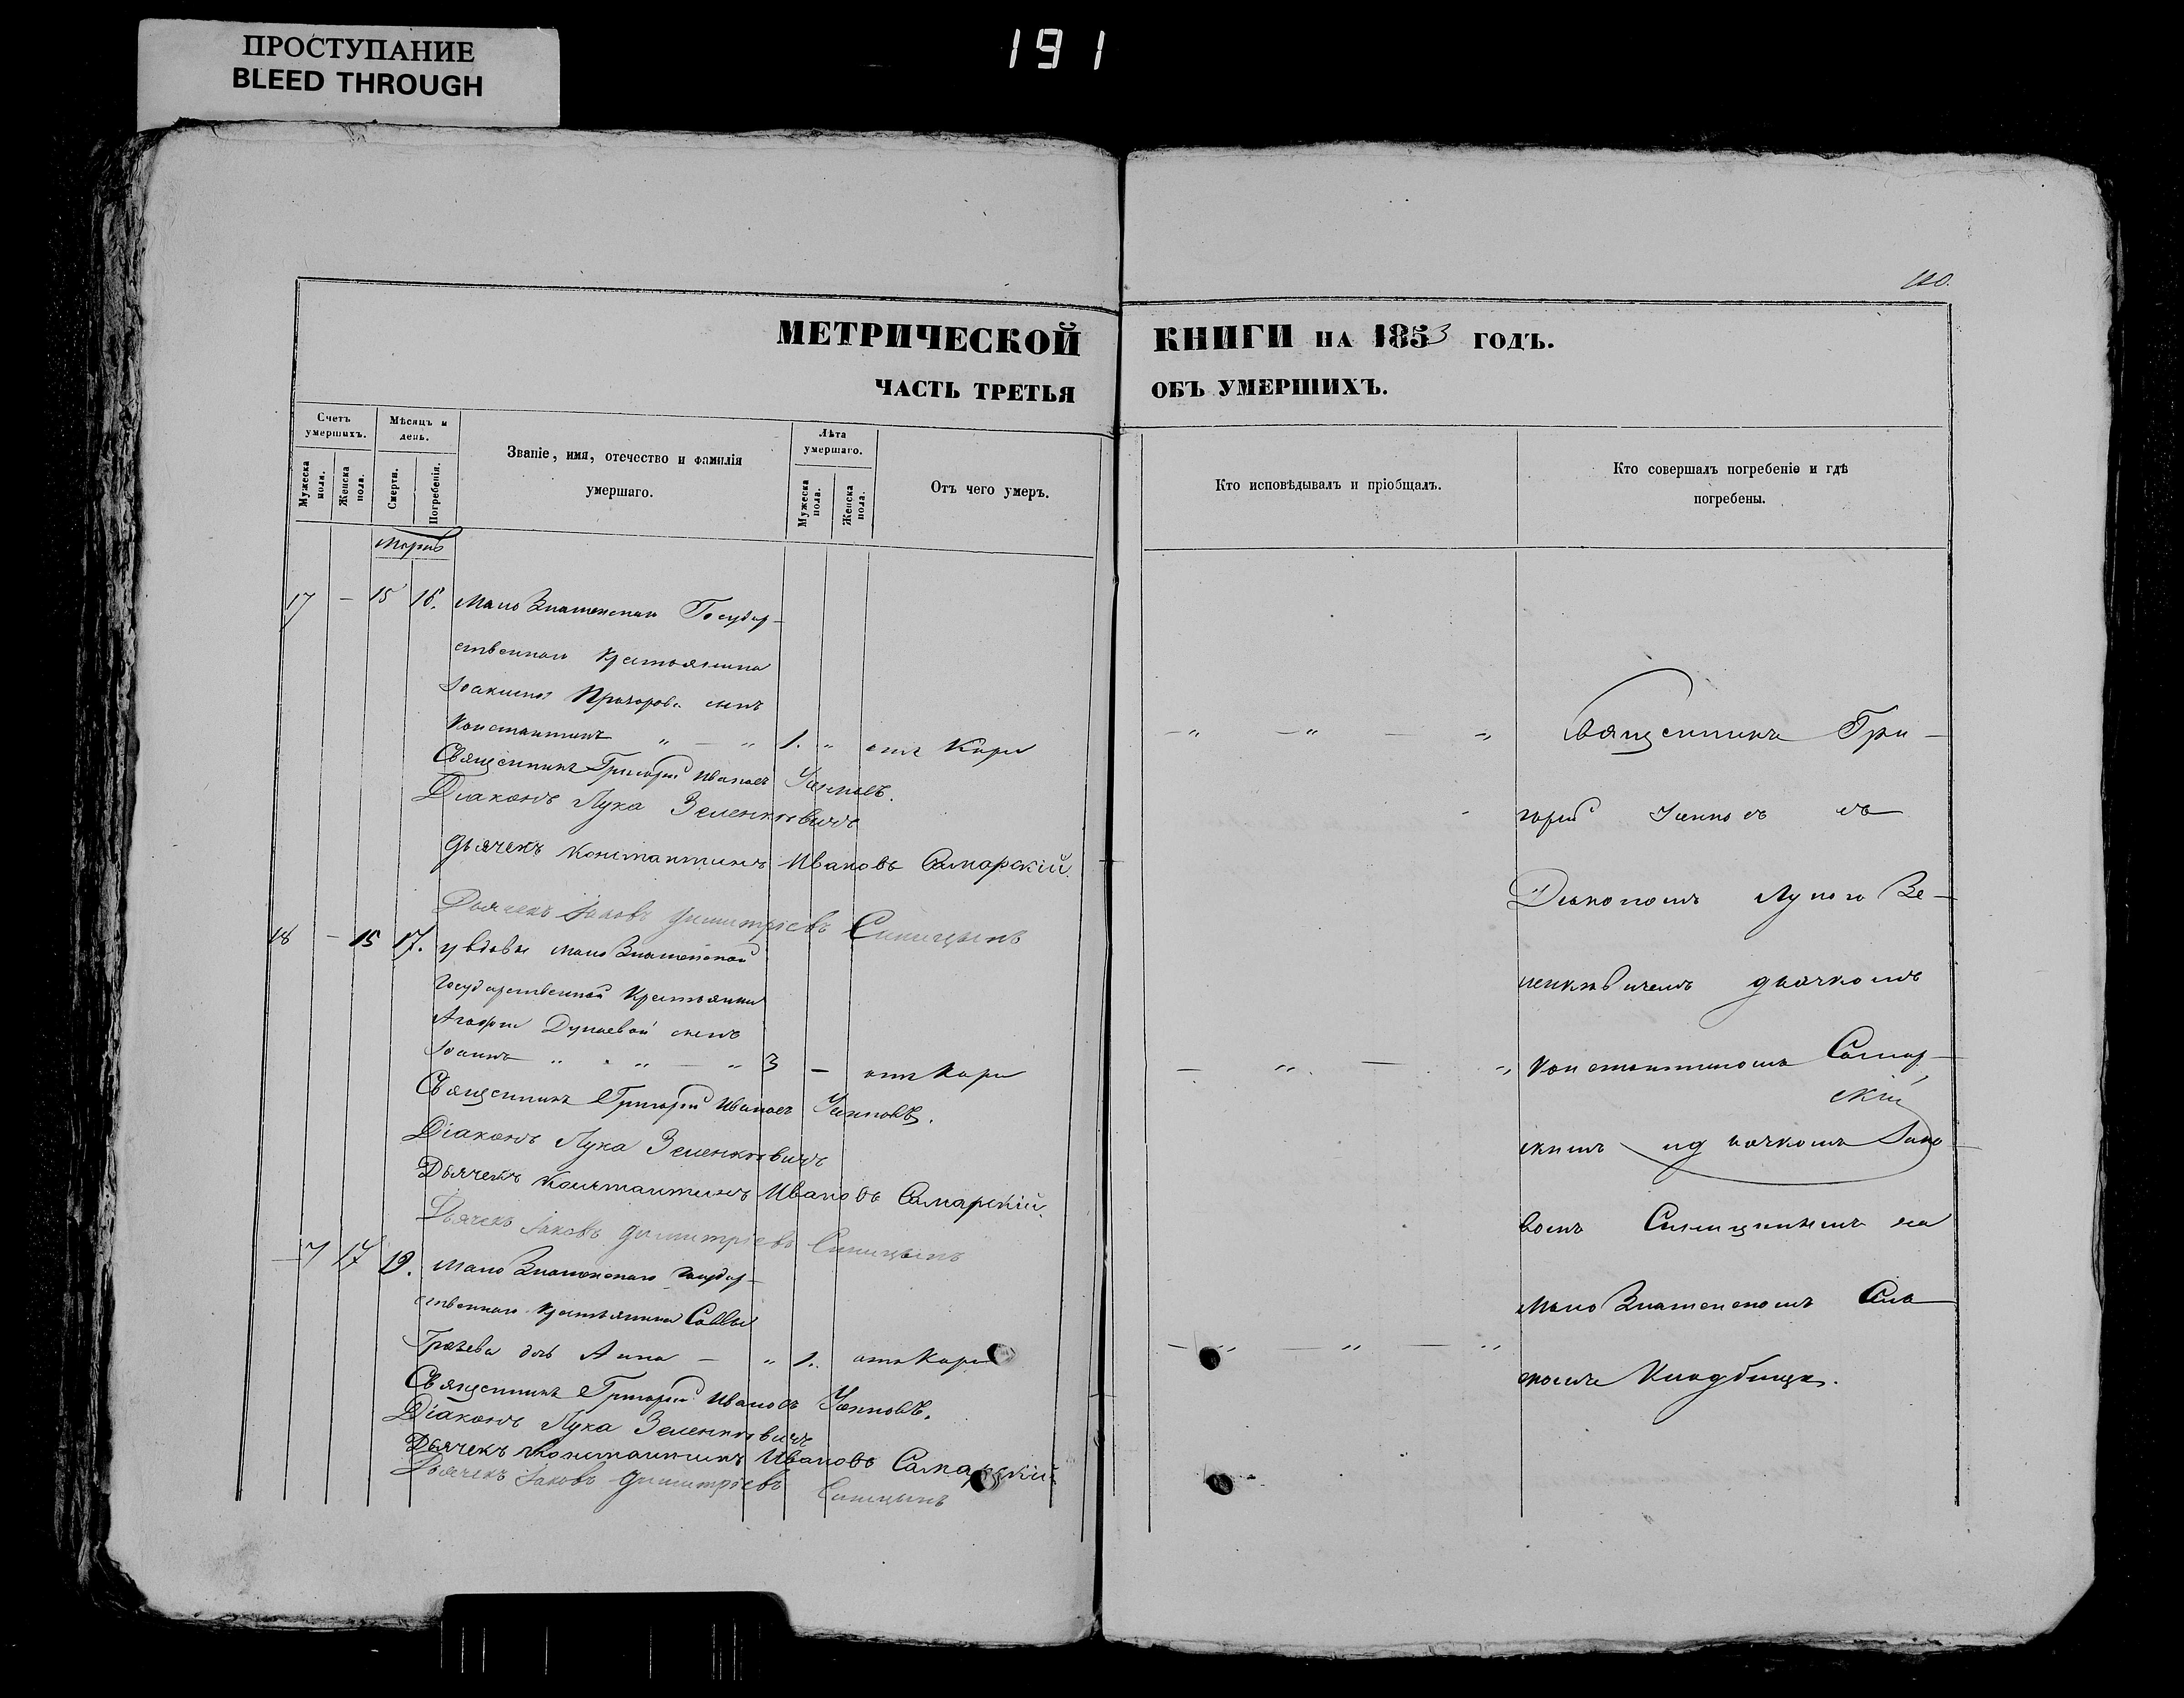 ПРОСТУПАНИЕ
BLEED THROUGH
191
МЕТРИЧЕСКОЙ КНИГИ НА 1853 ГОДЪ.
ЧАСТЬ ТРЕТЬЯ ОБЪ УМЕРШИХЪ.
Счетъ умершихъ.
Мужеска пола.
Женска пола.
Мѣсяцъ и день.
Смерти.
Погребенія.
Званіе, имя, отечество и фамилія
умершаго.
Лѣта умершаго.
Мужеска пола.
Женска пола.
Отъ чего умеръ.
Кто исповѣдывалъ и пріобщалъ.
Кто совершалъ погребеніе и гдѣ
погребены.
Мартъ
17 — 15 16. Мало Знаменскаго Государ-
ственнаго Крестьянина
Іоакима Прохорова сынъ
Константинъ „ — „ 1. „ отъ Кори
Священникъ Григорій Ивановъ
Діаконъ Лука Зеленкевичъ
Дьячекъ Константинъ Ивановъ Самарскій.
Дьячекъ Іаковъ Димитріевъ Синицынъ
18 — 15 17. у вдовы Мало Знаменской
Государственной Крестьянки
Агафіи Дунаевой сынъ
Іоаннъ „ „ — „ 3 — отъ Кори
Священникъ Григорій Ивановъ
Діаконъ Лука Зеленкевичъ
Дьячекъ Константинъ Ивановъ Самарскій.
Дьячекъ Іаковъ Димитріевъ Синицынъ
— 7 17 19. Мало Знаменскаго Государ-
ственнаго Крестьянина Саввы
дочь Анна — „ 1. отъ Кори
Священникъ Григорій Ивановъ
Діаконъ Лука Зеленкевичъ
Дьячекъ Константинъ Ивановъ Самарскій.
Дьячекъ Іаковъ Димитріевъ Синицынъ
Священникъ Гри-
горій съ
Діакономъ Лукою Зе-
ленкевичемъ дьячкомъ
Константиномъ Самар-
скій
скимъ и дьячкомъ Іако-
вомъ Синицынымъ на
Мало Знаменскомъ
Кладбищѣ.